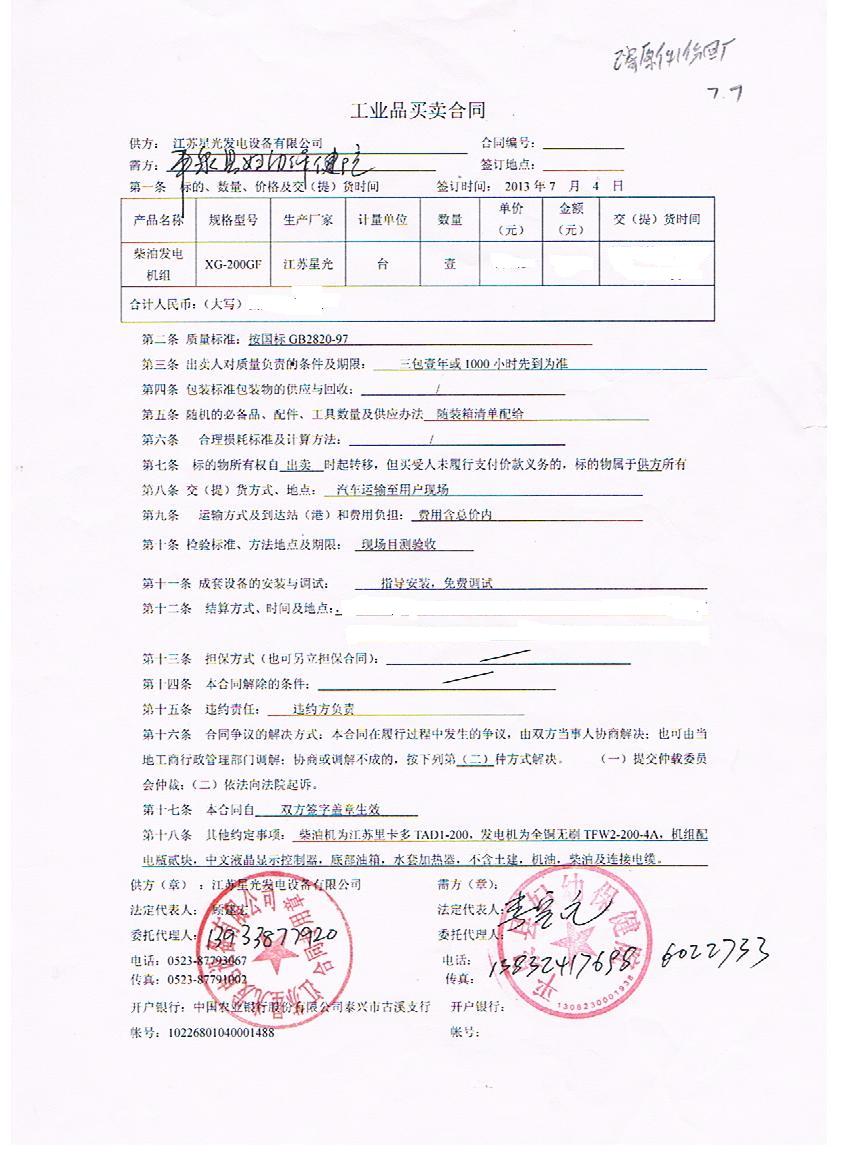 7.7
工业品买卖合同
供方：江苏星光发电设备有限公司 合同编号：
需方：平泉县妇幼保健院 签订地点：
第一条 标的、数量、价格及交（提）货时间 签订时间：2013年7月4日
产品名称 规格型号 生产厂家 计量单位 数量 单价（元） 金额（元） 交（提）货时间
柴油发电机组 XG-200GF 江苏星光 台 壹
合计人民币：（大写）
第二条 质量标准：按国标GB2820-97
第三条 出卖人对质量负责的条件及期限： 三包壹年或1000小时先到为准
第四条 包装标准包装物的供应与回收： /
第五条 随机的必备品、配件、工具数量及供应办法 随装箱清单配给
第六条 合理损耗标准及计算方法： /
第七条 标的物所有权自 出卖 时起转移，但买受人未履行支付价款义务的，标的物属于供方所有
第八条 交（提）货方式、地点： 汽车运输至用户现场
第九条 运输方式及到达站（港）和费用负担： 费用含总价内
第十条 检验标准、方法地点及期限： 现场目测验收
第十一条 成套设备的安装与调试： 指导安装，免费调试
第十二条 结算方式、时间及地点：
第十三条 担保方式（也可另立担保合同）：
第十四条 本合同解除的条件：
第十五条 违约责任： 违约方负责
第十六条 合同争议的解决方式：本合同在履行过程中发生的争议，由双方当事人协商解决；也可由当
地工商行政管理部门调解；协商或调解不成的，按下列第（二）种方式解决。 （一）提交仲裁委员
会仲裁；（二）依法向法院起诉。
第十七条 本合同自 双方签字盖章生效
第十八条 其他约定事项： 柴油机为江苏里卡多TAD1-200，发电机为全铜无刷TFW2-200-4A，机组配
电瓶贰块，中文液晶显示控制器，底部油箱，水套加热器，不含土建，机油，柴油及连接电缆。
供方（章）：江苏星光发电设备有限公司 需方（章）：
法定代表人： 法定代表人：
委托代理人：13933877920 委托代理人：
电话：0523-87793067 电话：13832417698 6022733
传真：0523-87791002 传真：
开户银行：中国农业银行股份有限公司泰兴市古溪支行 开户银行：
帐号：10226801040001488 帐号：
江苏星光发电设备有限公司
合同专用章
平泉县妇幼保健院
1308230001938